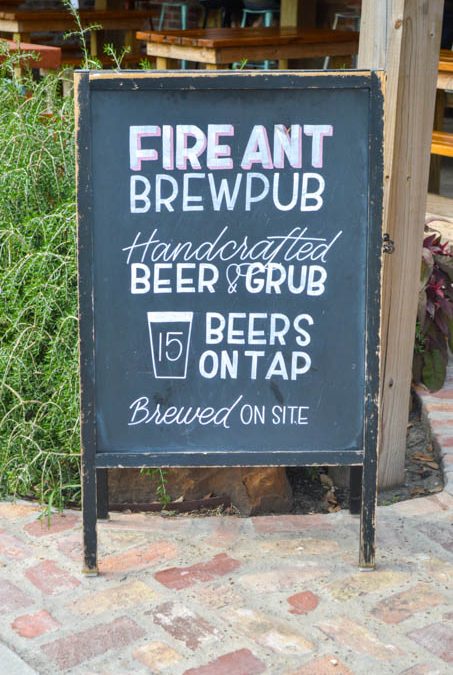 FIRE ANT
BREWPUB
Handcrafted
BEER & GRUB
15 BEERS
ON TAP
Brewed ON SITE